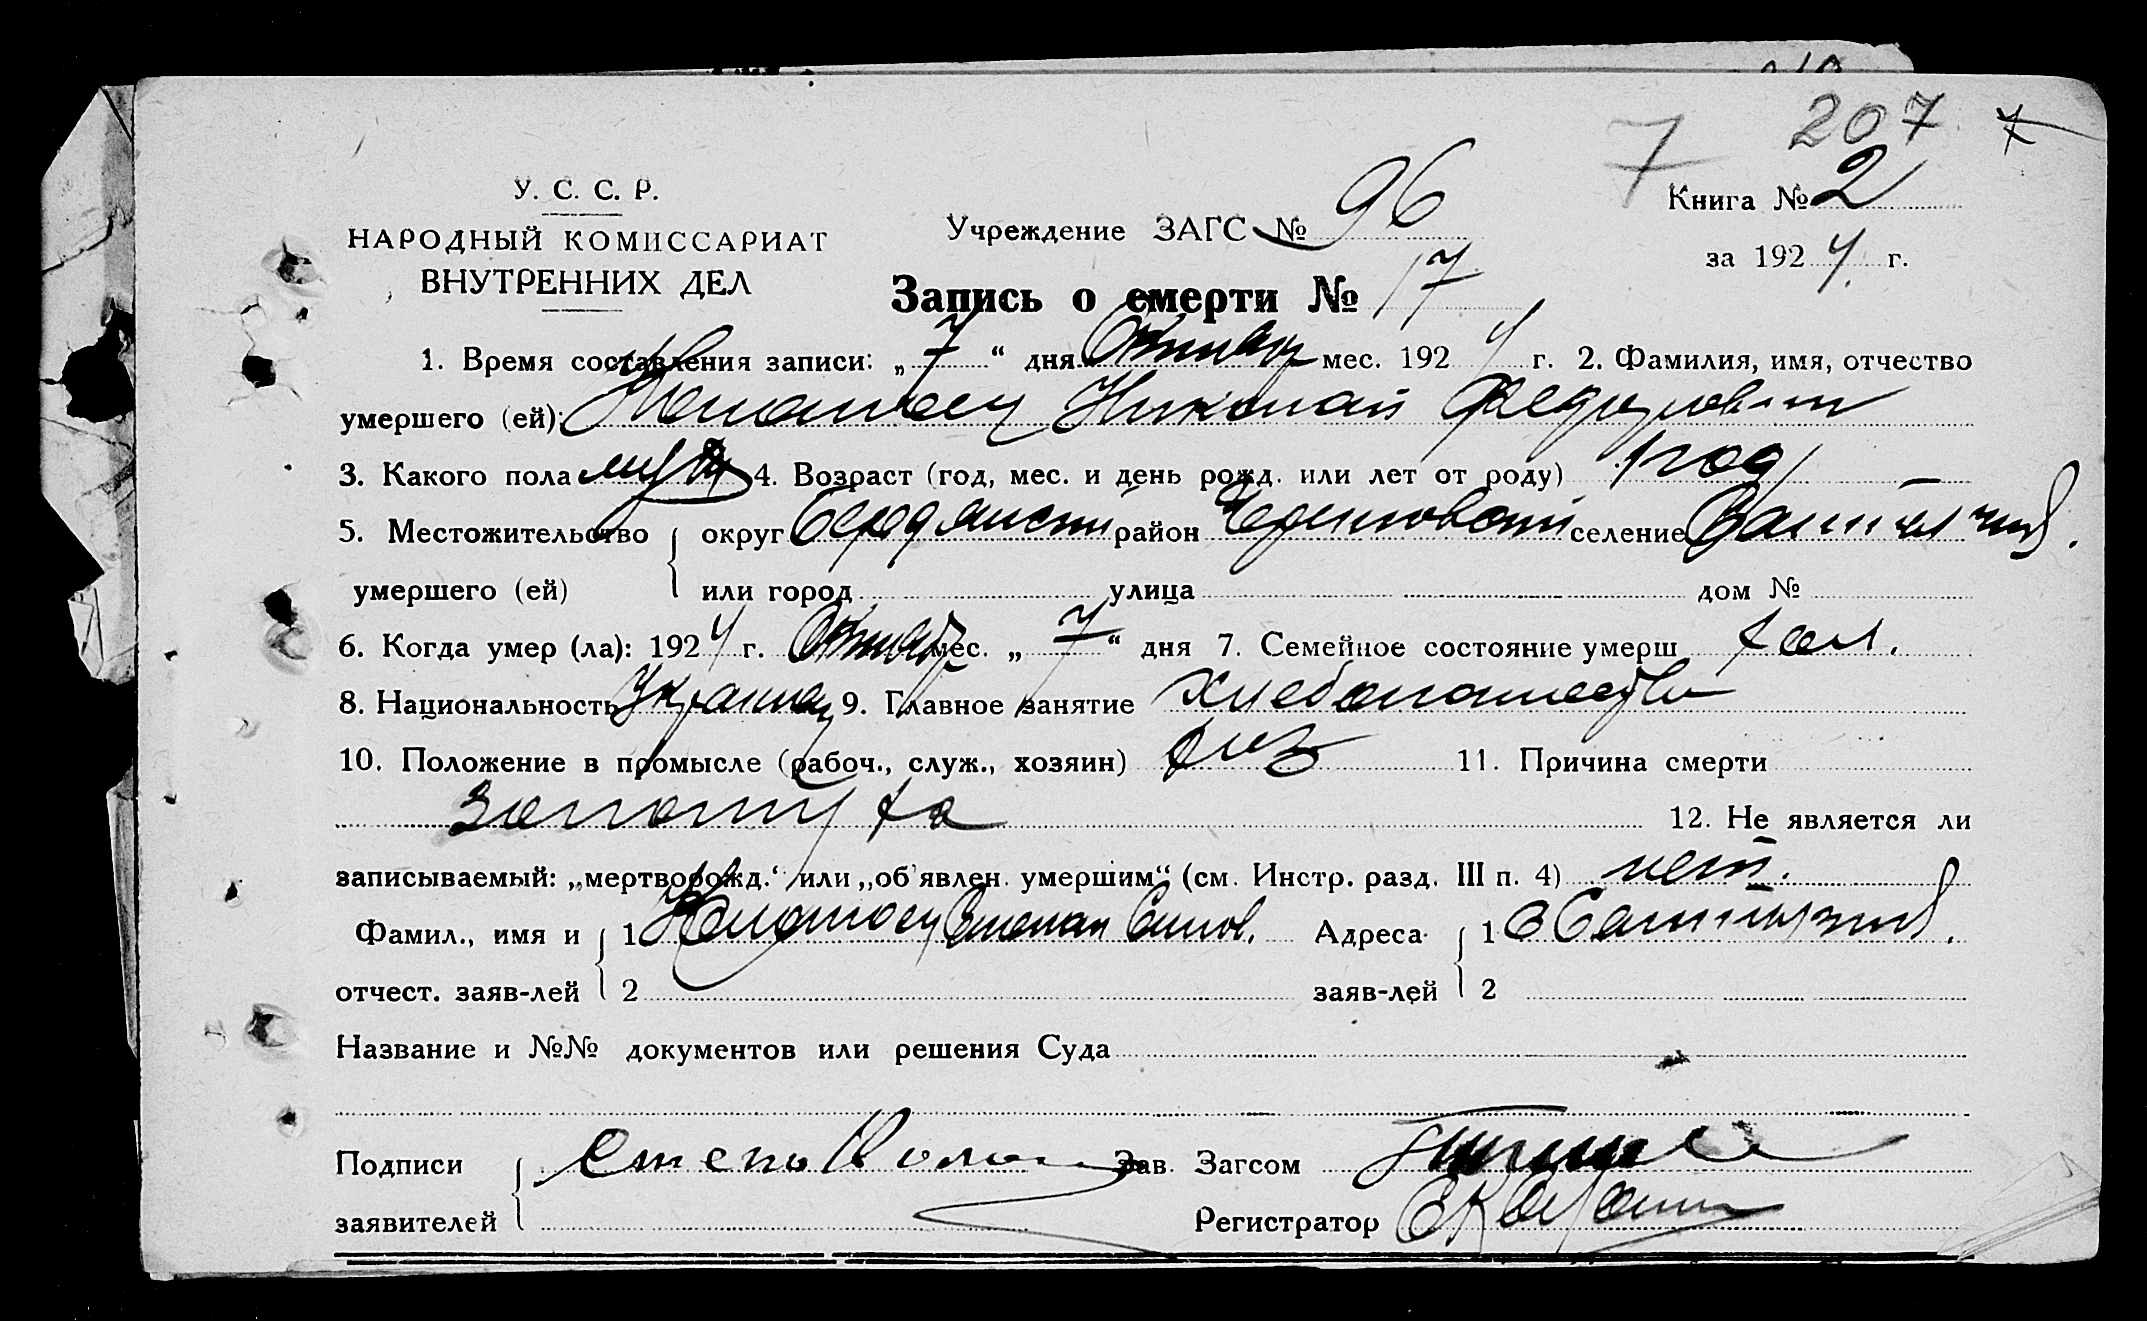 207
7
У. С. С. Р.
НАРОДНЫЙ КОМИССАРИАТ
ВНУТРЕННИХ ДЕЛ
Учреждение ЗАГС № 96
Книга № 2
за 1924 г.
Запись о смерти № 17
1. Время составления записи: „7“ дня Октября мес. 1924 г. 2. Фамилия, имя, отчество
умершего (ей): Николай Федорович
3. Какого пола муж 4. Возраст (год, мес. и день рожд. или лет от роду) 1 год
5. Местожительство округ Бердянский район селение
умершего (ей) или город улица дом №
6. Когда умер (ла): 1924 г. Октябр мес. „7“ дня 7. Семейное состояние умерш хол.
8. Национальность Украинец 9. Главное занятие хлебопашество
10. Положение в промысле (рабоч., служ., хозяин) хоз 11. Причина смерти
золотуха 12. Не является ли
записываемый: „мертворожд.“ или „об'явлен. умершим“ (см. Инстр. разд. III п. 4) нет.
Фамил., имя и 1 Степан Адреса 1 с
отчест. заяв-лей 2 заяв-лей 2
Название и №№ документов или решения Суда
Подписи Зав. Загсом
заявителей Регистратор